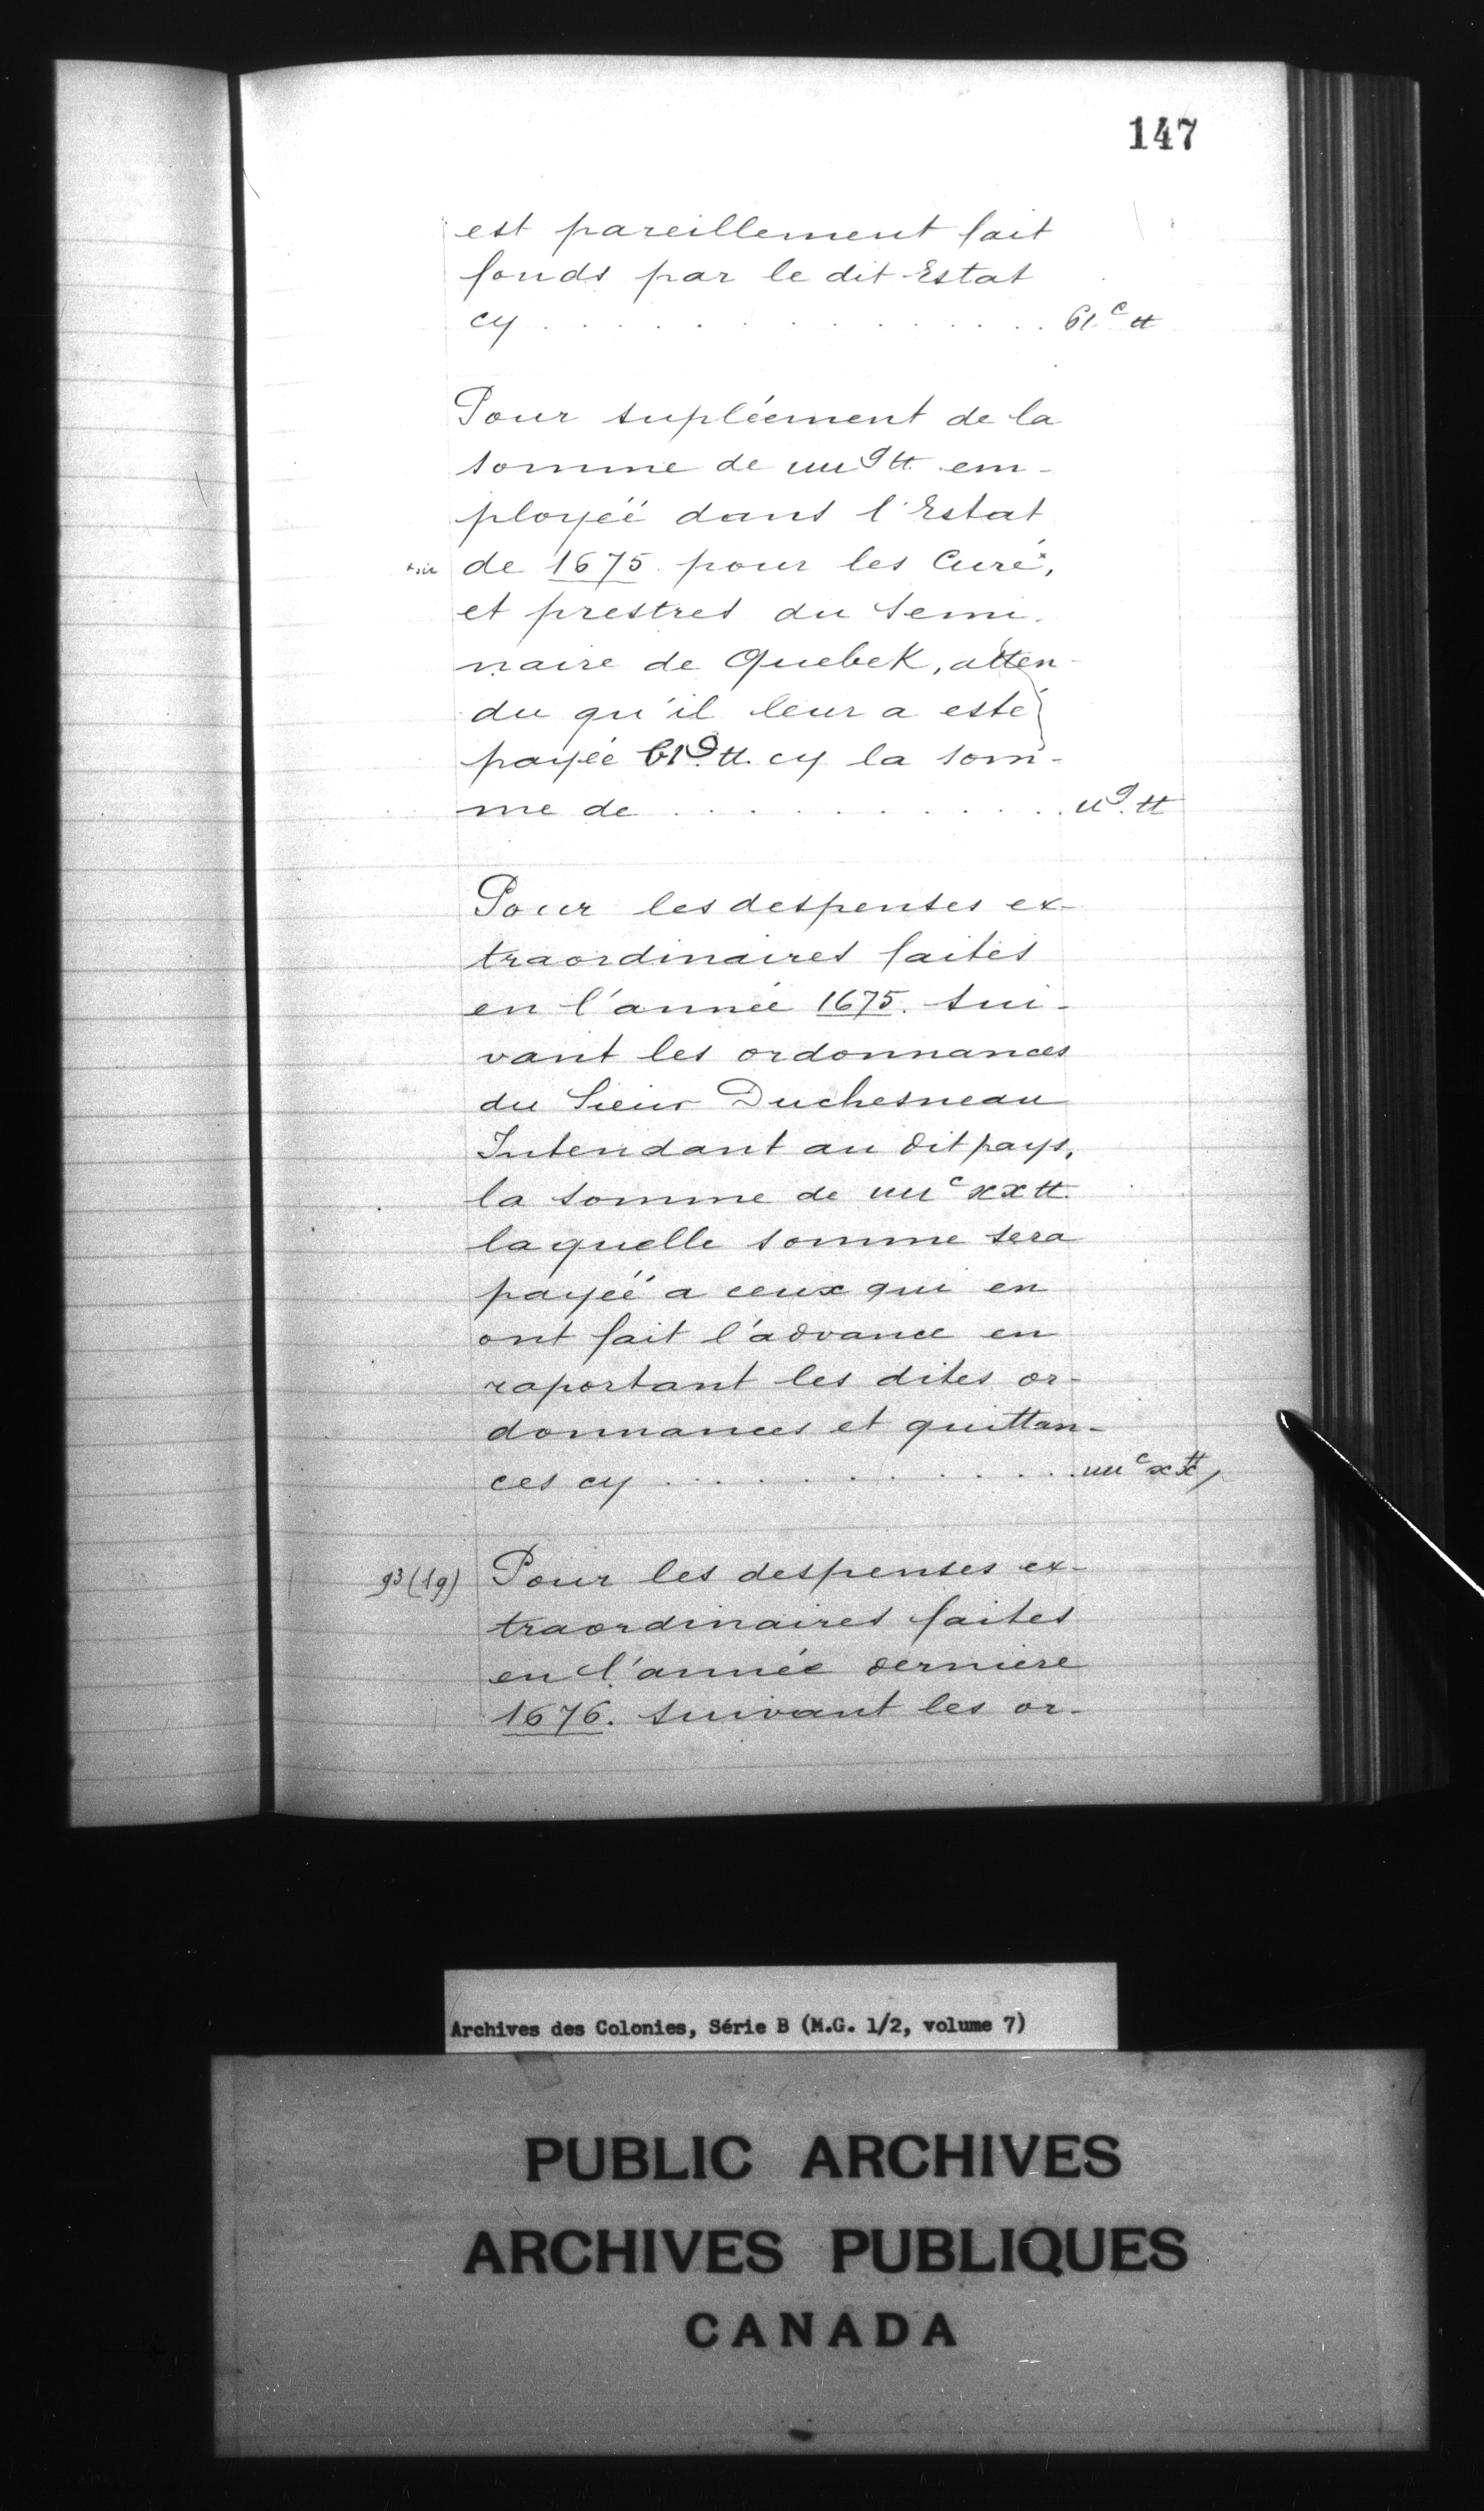 147
est pareillement fait
fonds par le dit Estat
cy . . . . . . . . . . . . . . 61.c tt
Pour supléement de la
somme de iiii g tt em-
ployéé dans l'Estat
de 1675. pour les Curé*,
et prestres du Semi-
naire de Quebek, atten-
du qu'il leur a esté
payée 61 g. tt. cy la som-
me de . . . . . . . . . . . ii g. tt
Pour les despenses ex-
traordinaires faites
en l'année 1675. sui-
vant les ordonnances
du Sieur Duchesneau
Intendant au dit pays,
la somme de iiii c xx tt.
laquelle somme sera
payéé a ceux qui en
ont fait l'advance en
raportant les dites or-
donnances et quittan-
ces cy . . . . . . . . . . . iiii c xx tt
93 (19) Pour les despenses ex-
traordinaires faites
en l'année derniere
1676. suivant les or-
Archives des Colonies, Série B (M.G. 1/2, volume 7)
PUBLIC ARCHIVES
ARCHIVES PUBLIQUES
CANADA